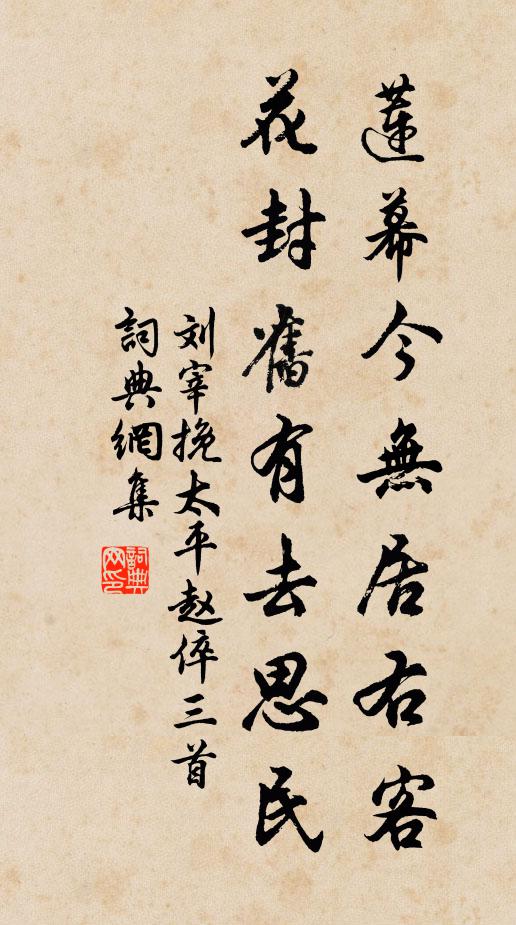 蓮幕今無居右客
花封舊有去思民
刘宰挽太平赵倅三首
詞典網集
詞典网印